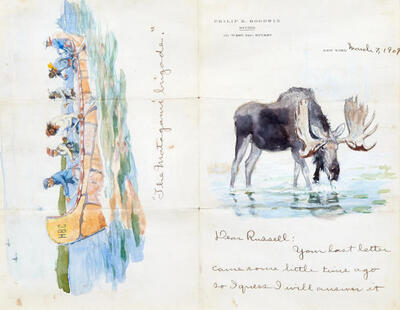 "The Matagami brigade."
HBC
PHILIP R. GOODWIN
STUDIO
NEW YORK March 7, 1909
Dear Russell:
Your last letter
came some little time ago
so I guess I will answer it